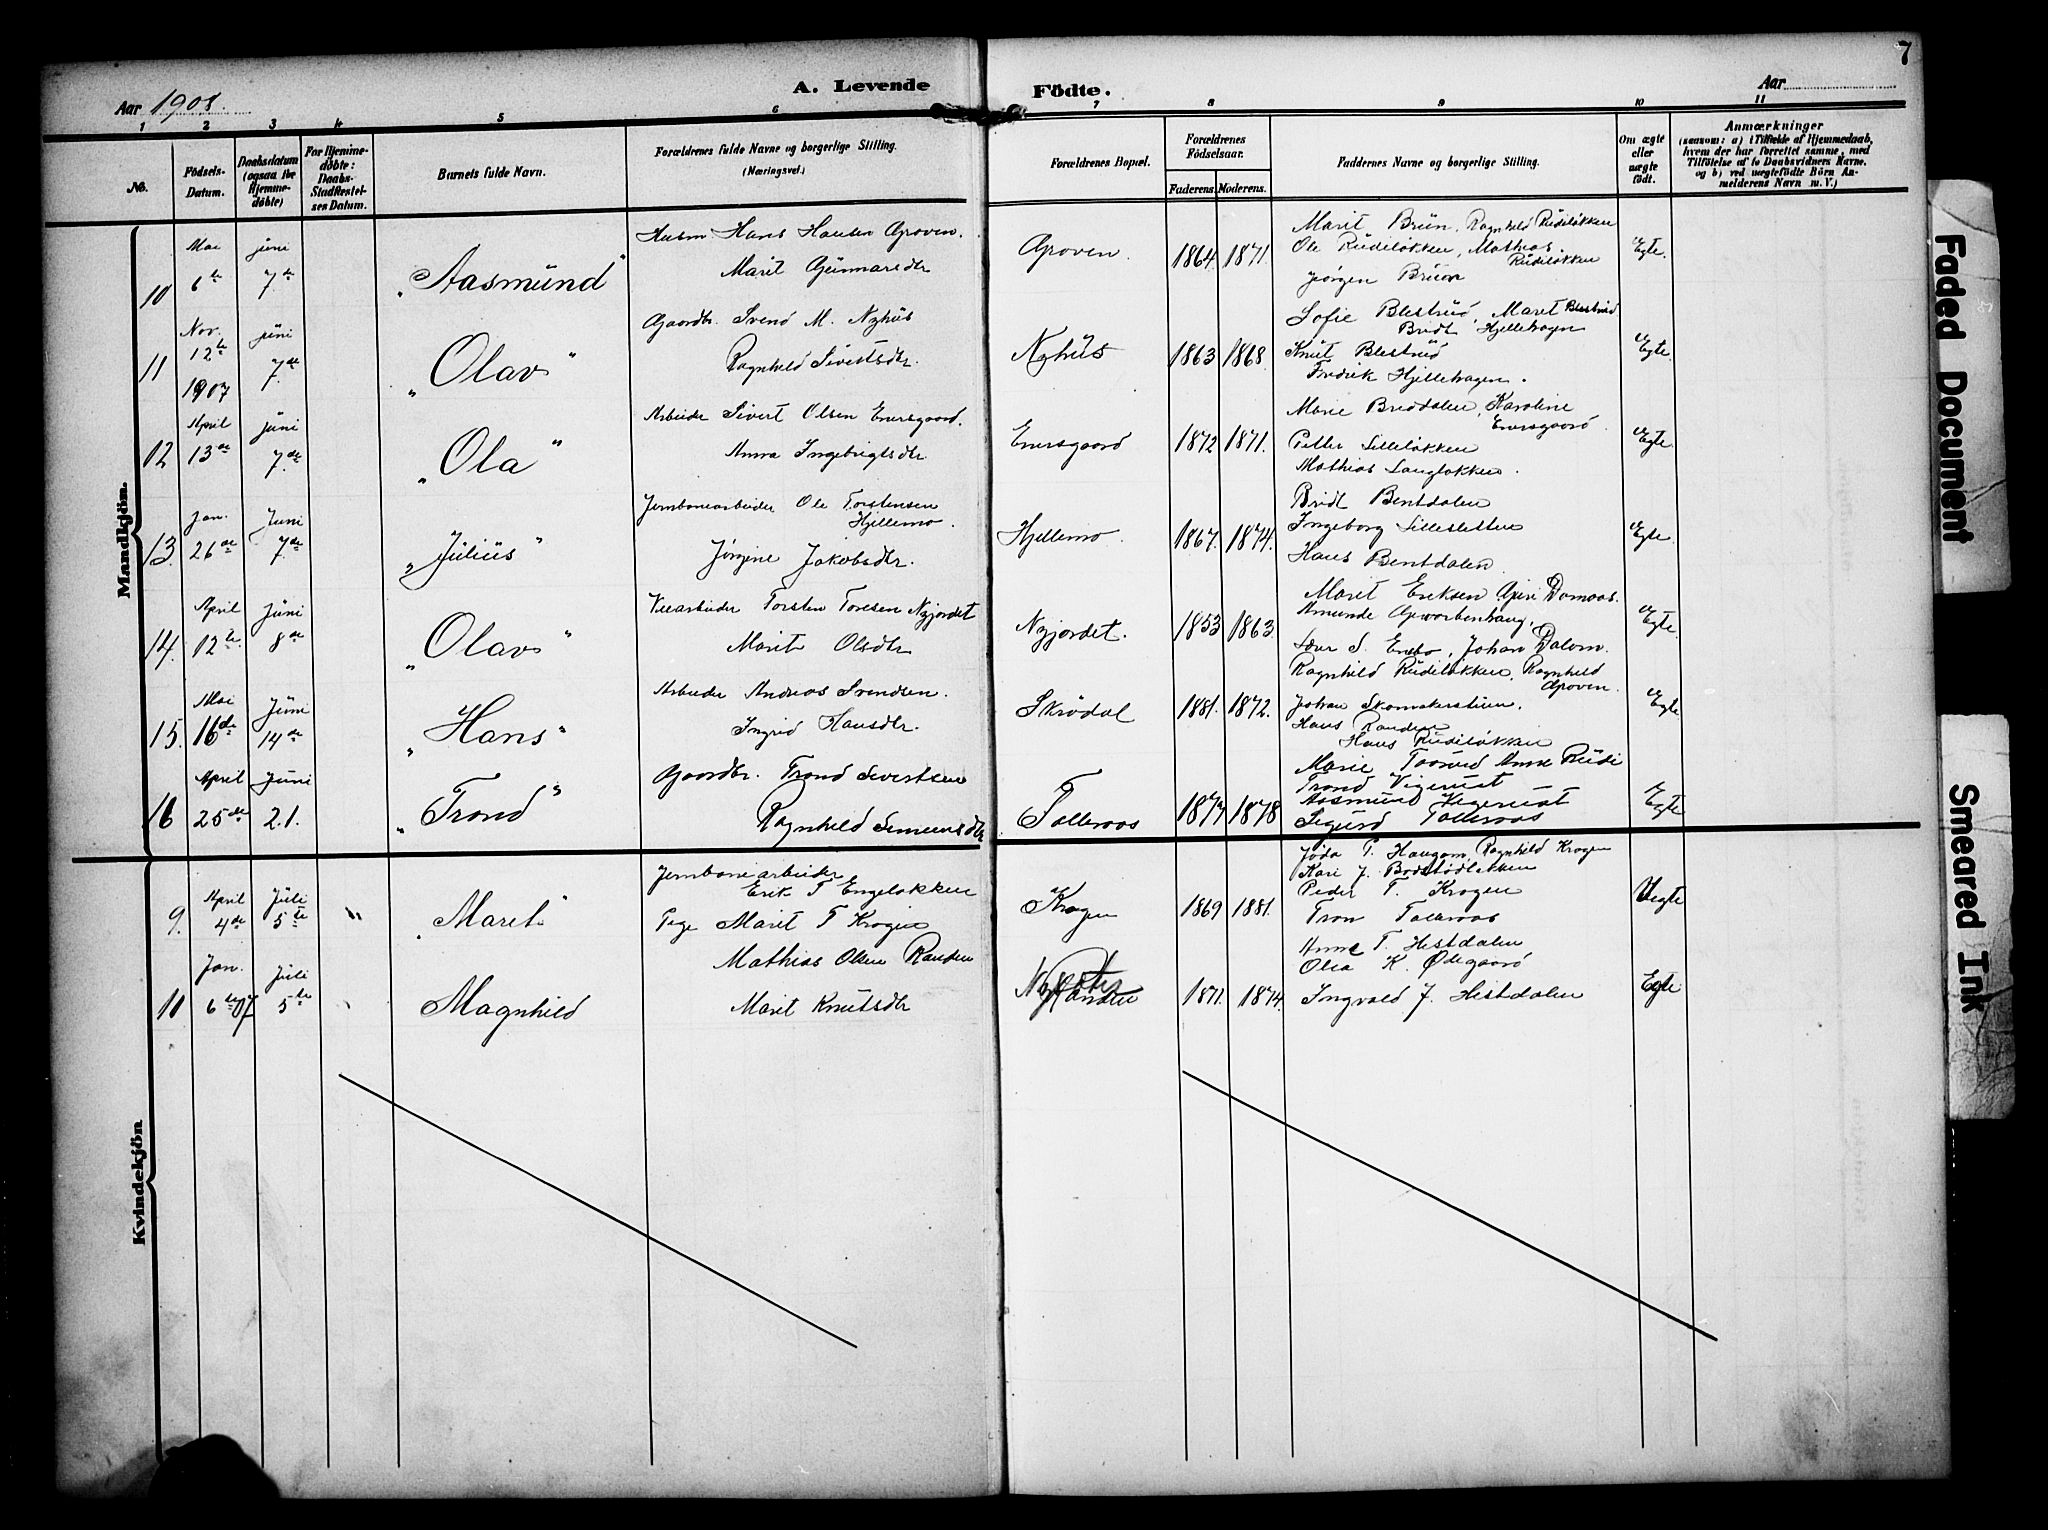 7
A. Levende Födte.
Aar 1908.
Aar
1 2 3 4 5 6 7 8 9 10 11
No.
Födsels-
Datum.
Daabsdatum
(ogsaa for
Hjemme-
döbte)
For Hjemme-
döbte:
Daabs-
Stadfæstel-
ses Datum.
Barnets fulde Navn.
Forældrenes fulde Navne og borgerlige Stilling.
(Næringsvei.)
Forældrenes Bopæl.
Forældrenes
Födselsaar.
Faderens. Moderens.
Faddernes Navne og borgerlig Stilling.
Om ægte
eller
uægte
födt.
Anmærkninger
(saasom: a) i Tilfælde af Hjemmedaab,
hvem der har forrettet samme, med
Tilföielse af to Daabsvidners Navne.
og b) ved uægtefödte Börn An-
melderens Navn m. V.)
Mandkjön.
10 Mai 6te juni 7de "Aasmund"
Husm Hans Hansen Groven.
Marit Gunnarsdtr
Groven. 1864. 1871.
Marit Brun, Ragnhild Rudiløkken
Ole Rudiløkken, Mathias Rudiløkken
Jørgen Bruun
Egte.
11 Nov. 12te 1907 juni 7de "Olav"
Gaardbr. Svend M. Nyhus
Ragnhild Sivertsdtr.
Nyhus 1863 1868
Sofie Blestrud, Maret Blestrud
Bridt Hjellehagen
Knut Blestrud
Fredrik Hjellehagen.
Egte.
12 April 13de juni 7de "Ola"
Arbeider Sivert Olsen Enersgaard.
Anna Ingebrigtsdtr.
Enersgaard 1872 1871.
Marie Breddalen, Karoline
Enersgaard.
Petter Lilleløkken
Mathias Langløkken.
Egte.
13. Jan. 26de Juni 7de "Julius"
Jernbanearbeider Ole Torstensen
Hjellemo.
Jørgine Jakobsdtr.
Hjellemo. 1867. 1874.
Bridt Bentdalen
Ingeborg Lillesletten
Hans Bentdalen.
Egte.
14. April 12te Juni 8de "Olav"
Veiarbeider Torsten Toresen Nyjordet
Marit Olsdtr
Nyjordet. 1853 1863.
Marit Eriksen Guri Domaas.
Amunde
S. Enebo, Johan Dalom.
Egte.
15. Mai 16de Juni 14de "Hans"
Arbeider Andreas Svendsen.
Ingrid Hansdtr.
Skrødal 1881. 1872.
Ragnhild Rudiløkken, Ragnhild
Groven.
Johan Skomakerstuen.
Hans Randen
Hans Rudiløkken
Egte
16 April 25de Juni 21. "Trond"
Gaardbr. Trond Sivertsen
Ragnhild Simensdtr
Tolleraas 1877 1878
Marie Toorud Anne Rudi
Trond Vigerust
Aasmund Vigerust
Sigurd Tolleraas
Egte
Kvindekjön.
9. April 4de Juli 5te " "Maret"
Jernbanearbeider
Erik T Engeløkken
Pige Marit T Krogen
Krogen 1869 1881.
Jøda P. Haugom, Ragnhild Krogen
Kari J.
Peder T. Krogen
Tron Tolleraas
Uegte
11 Jan. 6te 07 Juli 5te Magnhild
Mathias Olsen Randen
Marit Knutsdtr
Randen 1871. 1874.
Anne T. Histdalen
Olea K. Ødegaard
Ingvald J. Histdalen
Egte
Faded Document
Smeared Ink